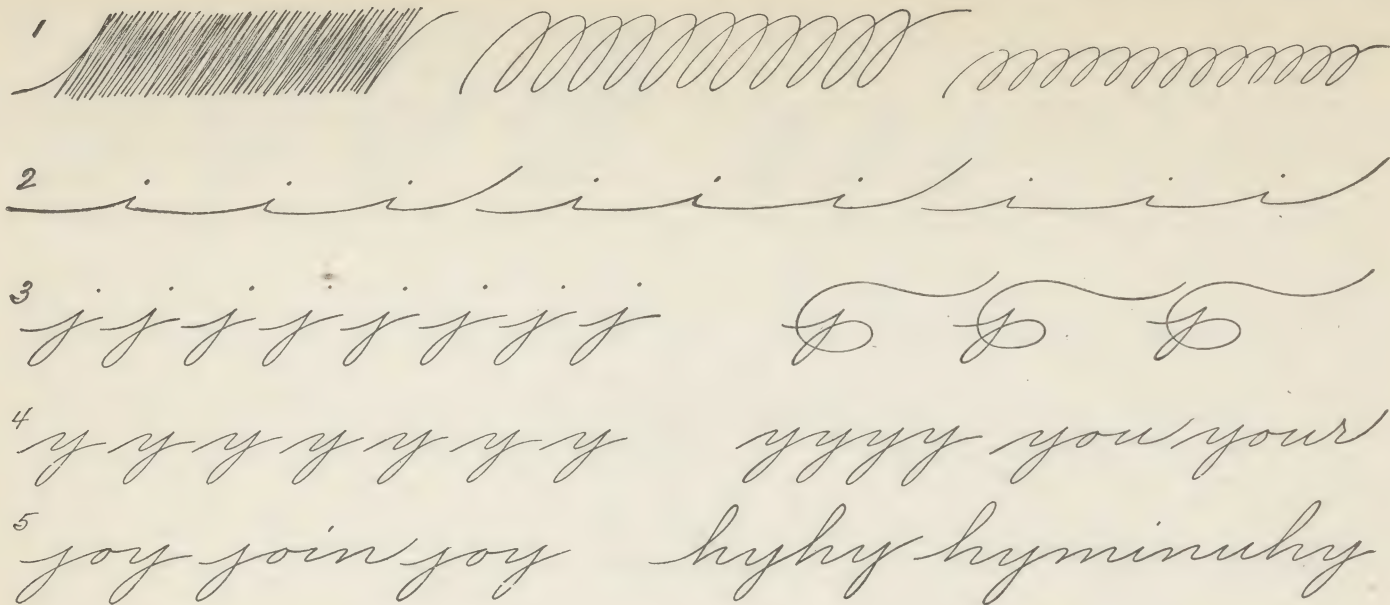 1
2 i i i i i i i i i
3 j j j j j j j j
4 y y y y y y y yyyy you your
5 joy join joy hyhy hyminuhy